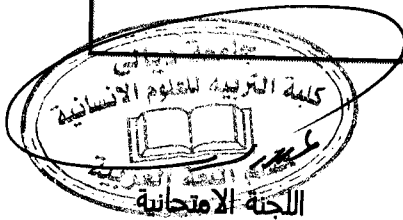 جامعة ديالى
كلية التربية للعلوم الانسانية
اللغة العربية
اللجنة الامتحانية